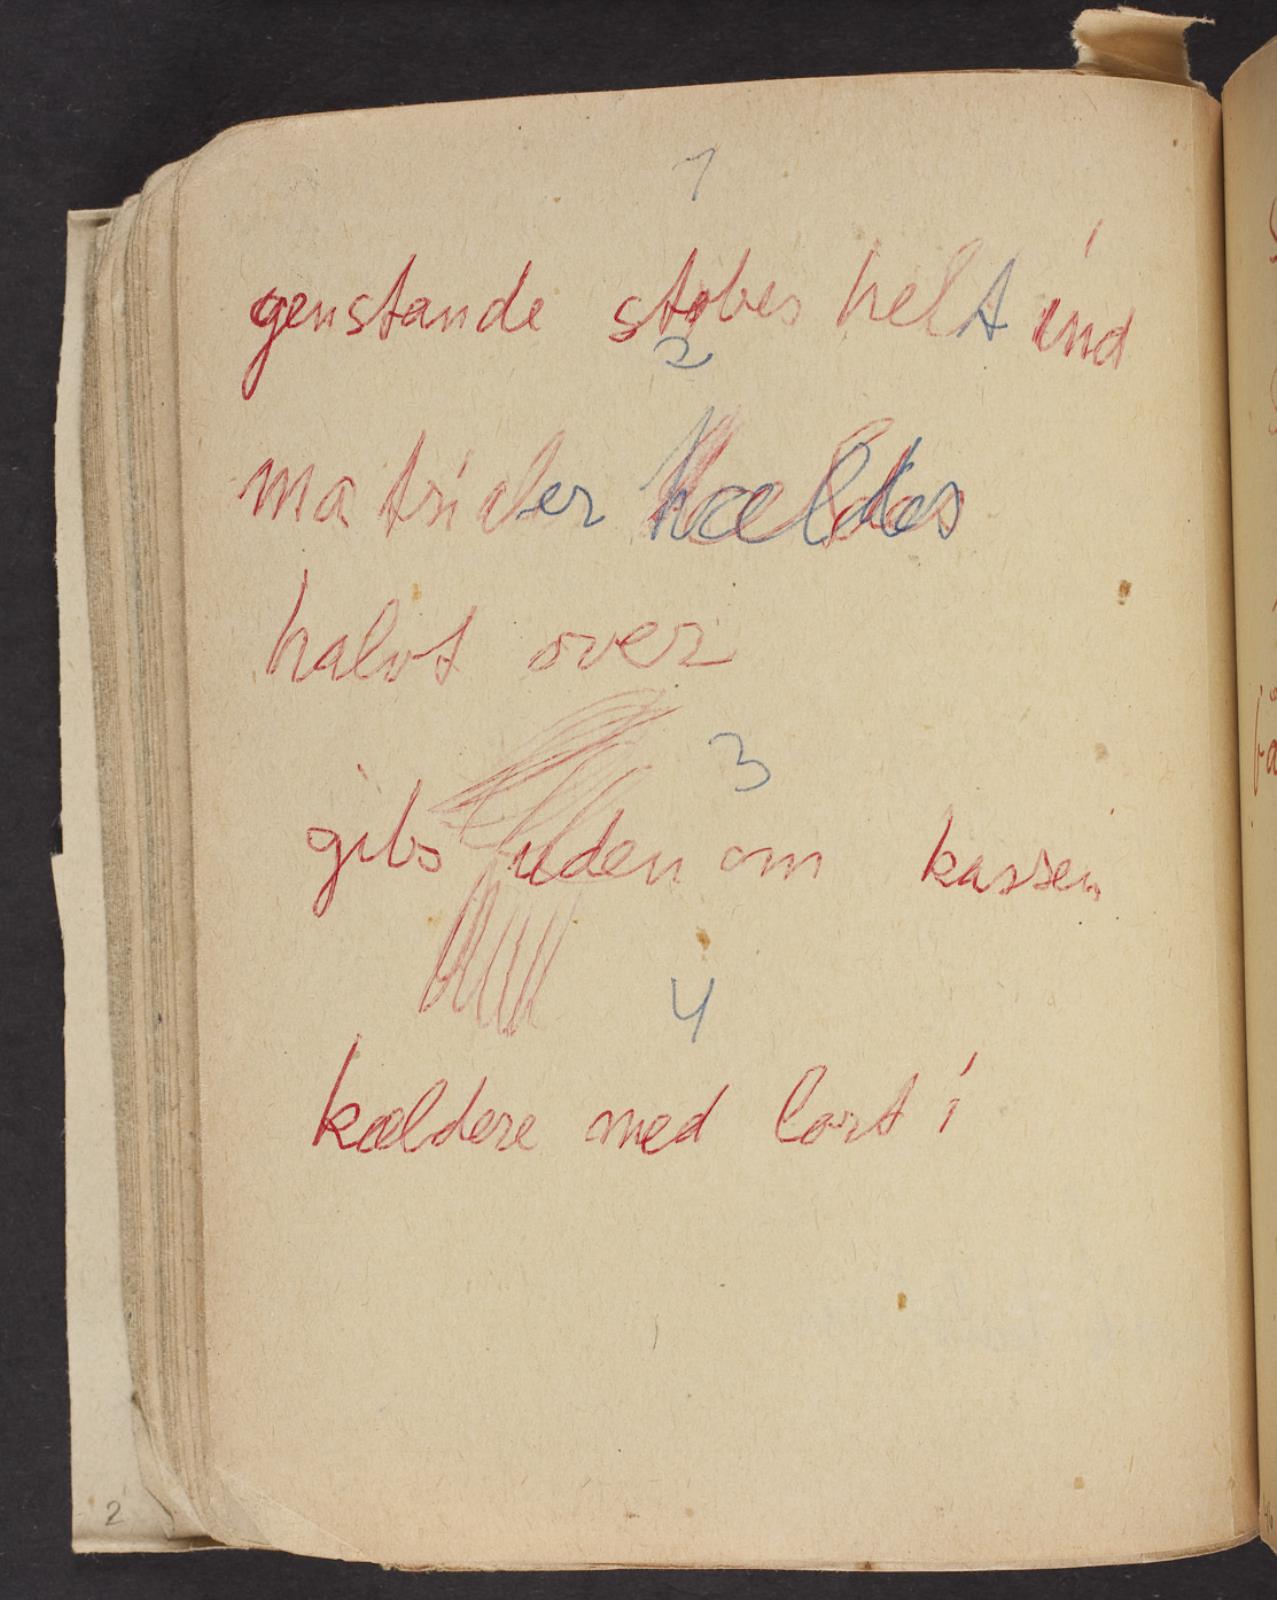 1
genstande støbes helt ind
2
matricer hældes
halvt over
3
gibs uden om kassen
4
kældere med lort i
2